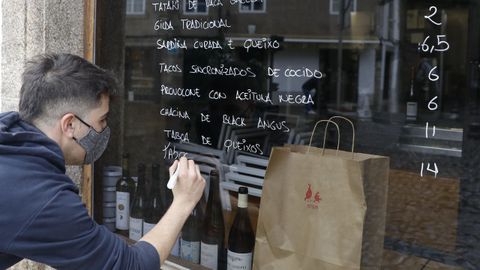 TATAKI DE VACA GALEGA
GILDA TRADICIONAL 2
SARDIÑA CURADA E QUEIXO 6,5
TACOS SINCRONIZADOS DE COCIDO 6
PROVOLONE CON ACEITUNA NEGRA 6
CHACINA DE BLACK ANGUS 11
TABOA DE QUEIXOS 14